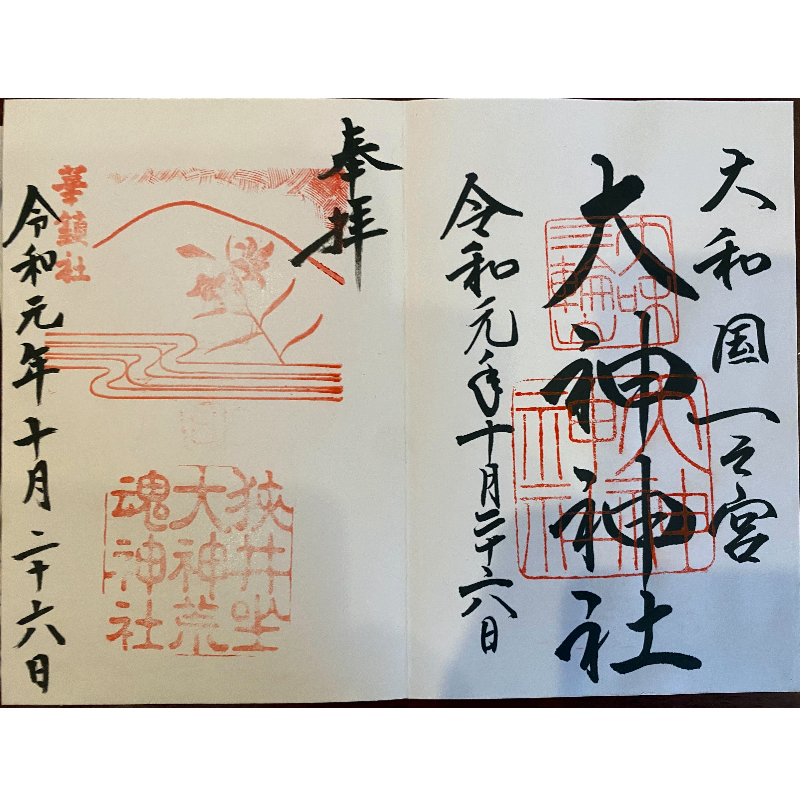 大和国一之宮
大神神社
三輪山
大神神社
令和元年十月二十六日
奉拝
華鎮社
狭井坐
大神荒
魂神社
令和元年十月二十六日